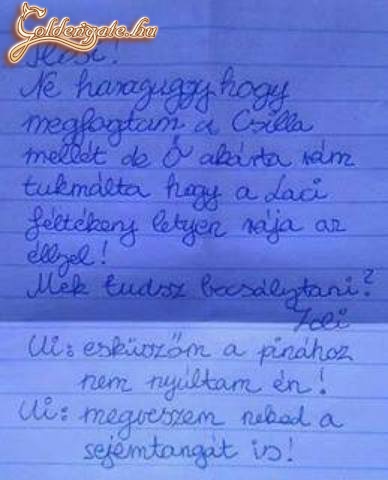 Goldengate.hu
Ne haraguggy hogy
megfogtam a Csilla
mellét de Ő akárta rám
tukmálta hogy a Laci
féltékeny letyen rája az
éllzel!
Mék tudsz bocsálytani?
Zoli
Ui: esküszöm a pinához
nem nyúltam én!
Ui: megveszem neked a
sejémtangát is!